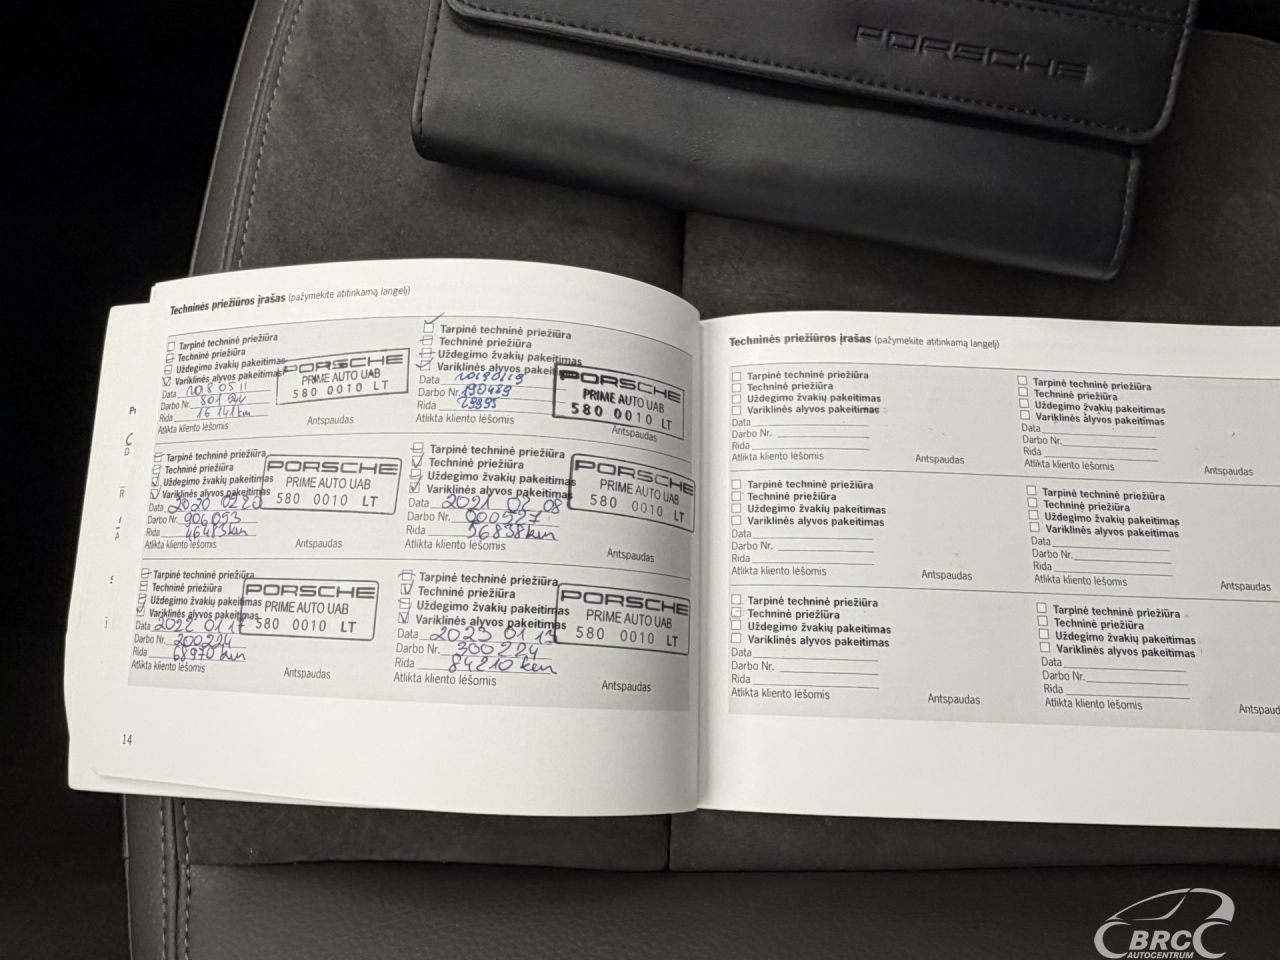 PORSCHE
Techninės priežiūros įrašas (pažymėkite atitinkamą langelį)
Tarpinė techninė priežiūra
Techninė priežiūra
Uždegimo žvakių pakeitimas
Variklinės alyvos pakeitimas
Data 2018 05 11
Darbo Nr. 801 944
Rida 16 141 km
Atlikta kliento lėšomis
Antspaudas
PORSCHE
PRIME AUTO UAB
580 0010 LT
Tarpinė techninė priežiūra
Techninė priežiūra
Uždegimo žvakių pakeitimas
Variklinės alyvos pakeitimas
Data 20190119
Darbo Nr. 190489
Rida 29895
Atlikta kliento lėšomis
Antspaudas
PORSCHE
PRIME AUTO UAB
580 0010 LT
Tarpinė techninė priežiūra
Techninė priežiūra
Uždegimo žvakių pakeitimas
Variklinės alyvos pakeitimas
Data 2020 02
Darbo Nr. 906093
Rida 46483 km
Atlikta kliento lėšomis
Antspaudas
PORSCHE
PRIME AUTO UAB
580 0010 LT
Tarpinė techninė priežiūra
Techninė priežiūra
Uždegimo žvakių pakeitimas
Variklinės alyvos pakeitimas
Data 2021 02 08
Darbo Nr. 000527
Rida 56838 km
Atlikta kliento lėšomis
Antspaudas
PORSCHE
PRIME AUTO UAB
580 0010 LT
Tarpinė techninė priežiūra
Techninė priežiūra
Uždegimo žvakių pakeitimas
Variklinės alyvos pakeitimas
Data 2022 01 17
Darbo Nr. 200224
Rida 68970 km
Atlikta kliento lėšomis
Antspaudas
PORSCHE
PRIME AUTO UAB
580 0010 LT
Tarpinė techninė priežiūra
Techninė priežiūra
Uždegimo žvakių pakeitimas
Variklinės alyvos pakeitimas
Data 2023 01 13
Darbo Nr. 300224
Rida 84210 km
Atlikta kliento lėšomis
Antspaudas
PORSCHE
PRIME AUTO UAB
580 0010 LT
14
Techninės priežiūros įrašas (pažymėkite atitinkamą langelį)
Tarpinė techninė priežiūra
Techninė priežiūra
Uždegimo žvakių pakeitimas
Variklinės alyvos pakeitimas
Data
Darbo Nr.
Rida
Atlikta kliento lėšomis
Antspaudas
Tarpinė techninė priežiūra
Techninė priežiūra
Uždegimo žvakių pakeitimas
Variklinės alyvos pakeitimas
Data
Darbo Nr.
Rida
Atlikta kliento lėšomis
Antspaudas
Tarpinė techninė priežiūra
Techninė priežiūra
Uždegimo žvakių pakeitimas
Variklinės alyvos pakeitimas
Data
Darbo Nr.
Rida
Atlikta kliento lėšomis
Antspaudas
Tarpinė techninė priežiūra
Techninė priežiūra
Uždegimo žvakių pakeitimas
Variklinės alyvos pakeitimas
Data
Darbo Nr.
Rida
Atlikta kliento lėšomis
Antspaudas
Tarpinė techninė priežiūra
Techninė priežiūra
Uždegimo žvakių pakeitimas
Variklinės alyvos pakeitimas
Data
Darbo Nr.
Rida
Atlikta kliento lėšomis
Antspaudas
Tarpinė techninė priežiūra
Techninė priežiūra
Uždegimo žvakių pakeitimas
Variklinės alyvos pakeitimas
Data
Darbo Nr.
Rida
Atlikta kliento lėšomis
Antspaud
BRC
AUTOCENTRUM